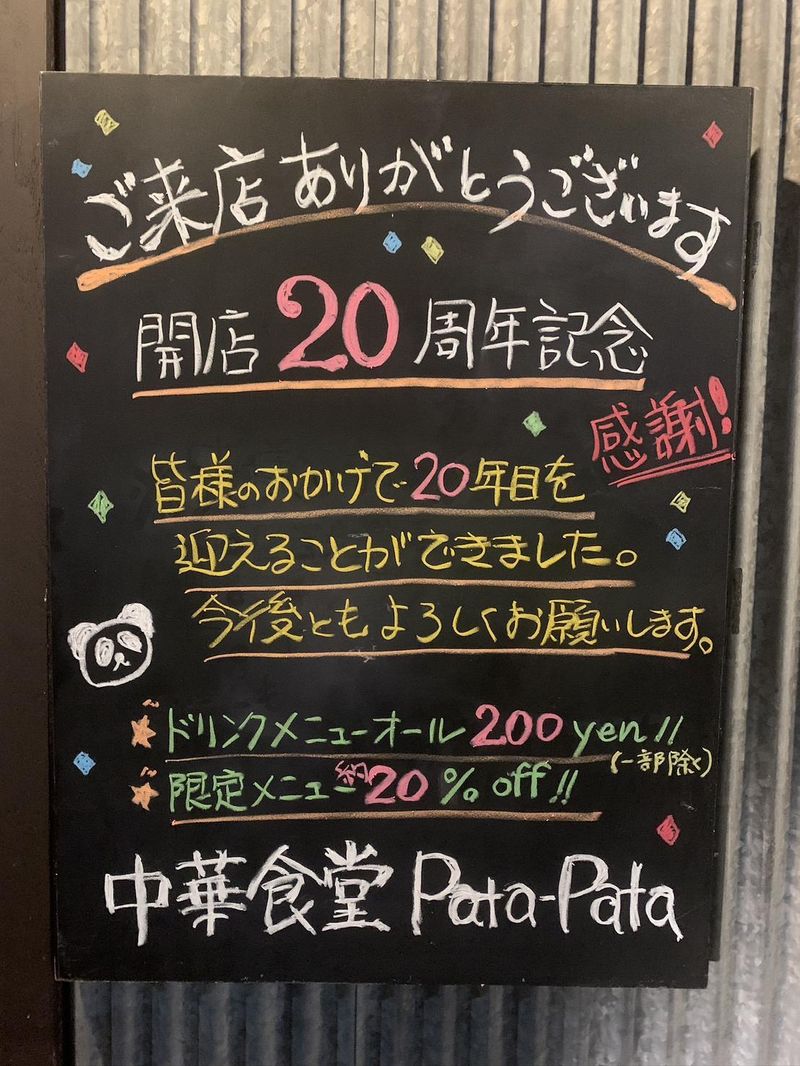 ご来店ありがとうございます
開店20周年記念
感謝!
皆様のおかげで20年目を
迎えることができました。
今後ともよろしくお願いします。
ドリンクメニューオール200yen!!
(一部除く)
限定メニュー約20%off!!
中華食堂Pata-Pata